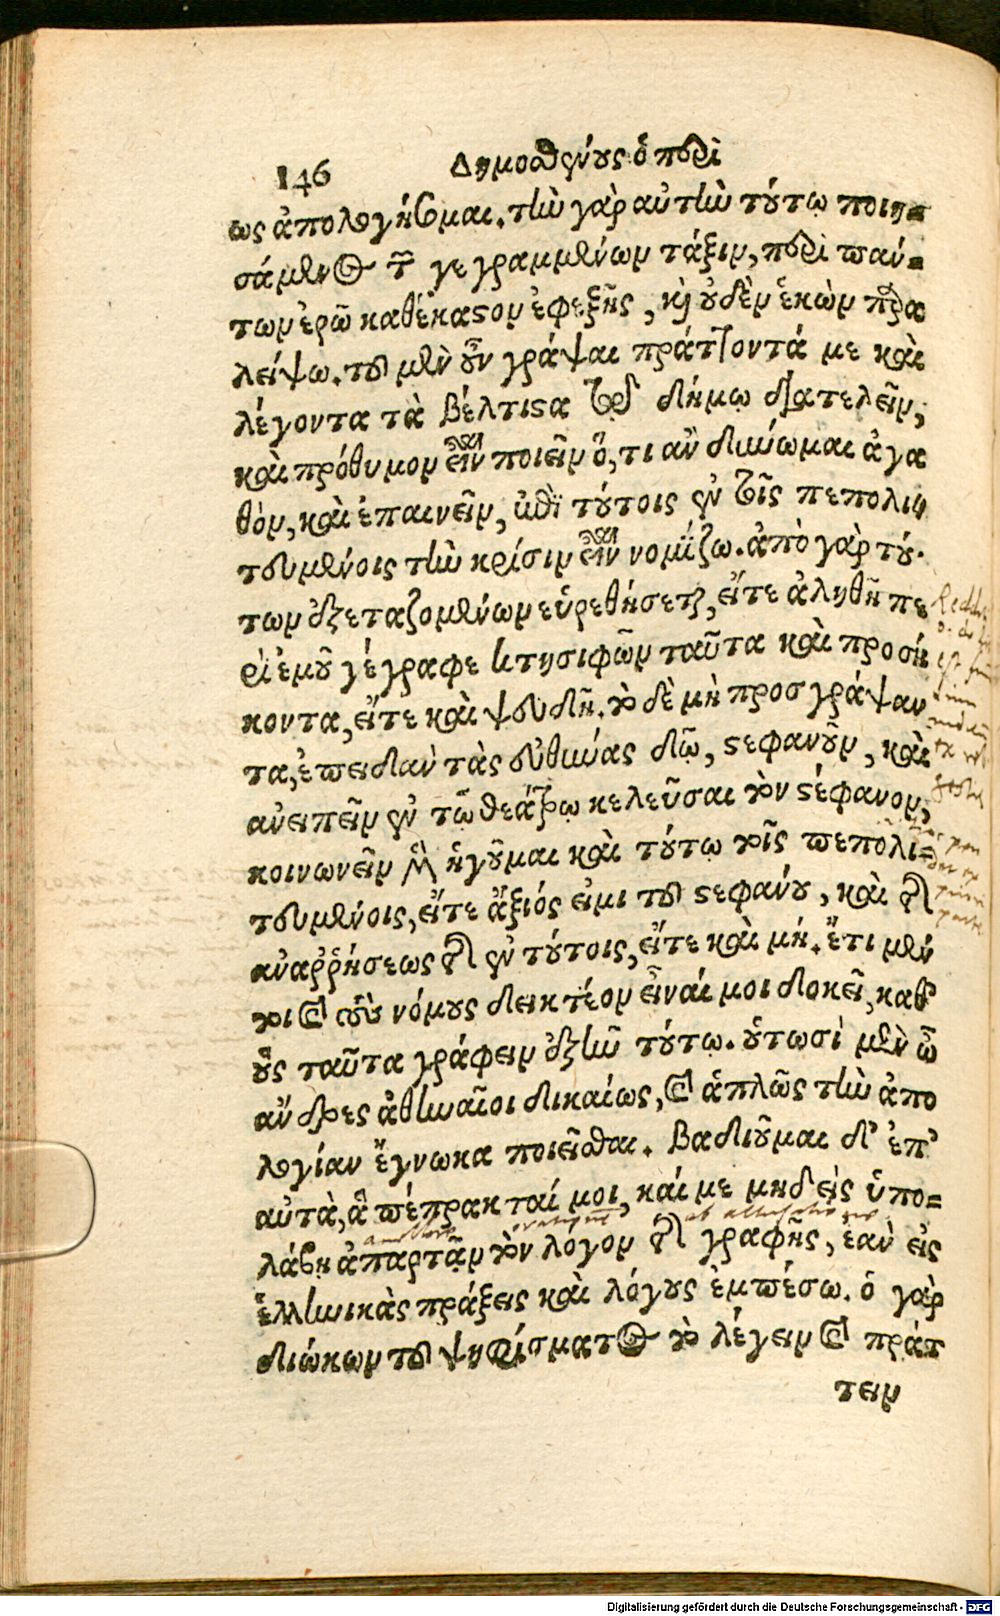 146 Δημοσθένους ὁ περὶ
ως ἀπολογήσωμαι. τὴν γὰρ αὐτὴν τούτῳ ποιη-
σάμενος τῶν γεγραμμένων τάξιν, περὶ πάν-
των ἐρῶ καθ' ἕκαστον ἐφεξῆς, καὶ οὐδὲν ἑκὼν παρα
λείψω. τοῦ μὲν οὖν γράψαι πράττοντά με καὶ
λέγοντα τὰ βέλτιστα τῷ δήμῳ διατελεῖν,
καὶ πρόθυμον εἶναι ποιεῖν ὅ, τι ἂν δυνώμαι ἀγα
θὸν, καὶ ἐπαινεῖν, ἐπὶ τούτοις ἐν τοῖς πεπολι
τευμένοις τὴν κρίσιν εἶναι νομίζω. ἀπὸ γὰρ τού-
των ἐξεταζομένων εὑρεθήσεται, εἴτε ἀληθῆ πε
ρὶ ἐμοῦ γέγραφε κτησιφῶν ταῦτα καὶ προσή
κοντα, εἴτε καὶ ψευδῆ. τὸ δὲ μὴ προσγράψαν
τα, ἐπειδὰν τὰς εὐθύνας δῷ, στεφανοῦν, καὶ
ἀνειπεῖν ἐν τῷ θεάτρῳ κελεῦσαι τὸν στέφανον,
κοινωνεῖν μὲν ἡγοῦμαι καὶ τούτῳ τοῖς πεπολι-
τευμένοις, εἴτε ἄξιός εἰμι τοῦ στεφάνου, καὶ τῆς
ἀναῤῥήσεως τῆς ἐν τούτοις, εἴτε καὶ μή. ἔτι μὲν
τοι καὶ τοὺς νόμους δεικτέον εἶναί μοι δοκεῖ, καθ'
οὓς ταῦτα γράφειν ἐξῆν τούτῳ. οὑτωσὶ μὲν ὦ
ἄνδρες ἀθηναῖοι δικαίως, καὶ ἁπλῶς τὴν ἀπο
λογίαν ἔγνωκα ποιεῖσθαι. βαδιοῦμαι δ' ἐπ'
αὐτὰ, ἃ πέπρακταί μοι, καί με μηδεὶς ὑπο-
λάβῃ ἀπαρτᾷν τὸν λόγον τῆς γραφῆς, ἐὰν εἰς
ἑλληνικὰς πράξεις καὶ λόγους ἐμπέσω. ὁ γὰρ
διώκων τοῦ ψηφίσματος τὸ λέγειν καὶ πράτ
τειν
Digitalisierung gefördert durch die Deutsche Forschungsgemeinschaft - DFG